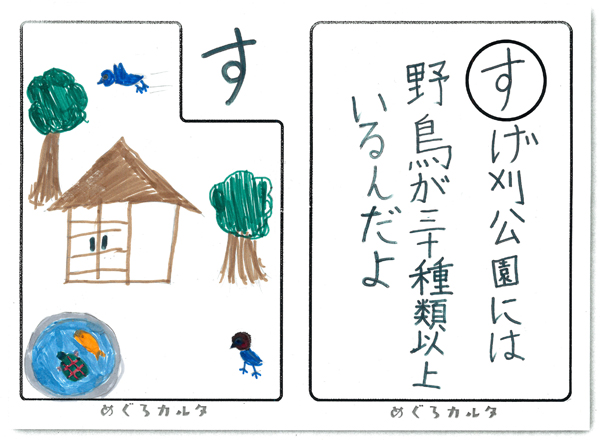 す
めぐろカルタ
すげ刈公園には
野鳥が三十種類以上
いるんだよ
めぐろカルタ